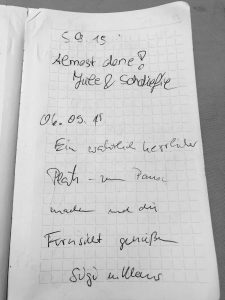 5.9.15
Almost done!
Jule & 
06.09.15
Ein wahrlich herrlicher
Platz - um Pause
machen und die
Fernsicht genießen
Sigi u Klaus